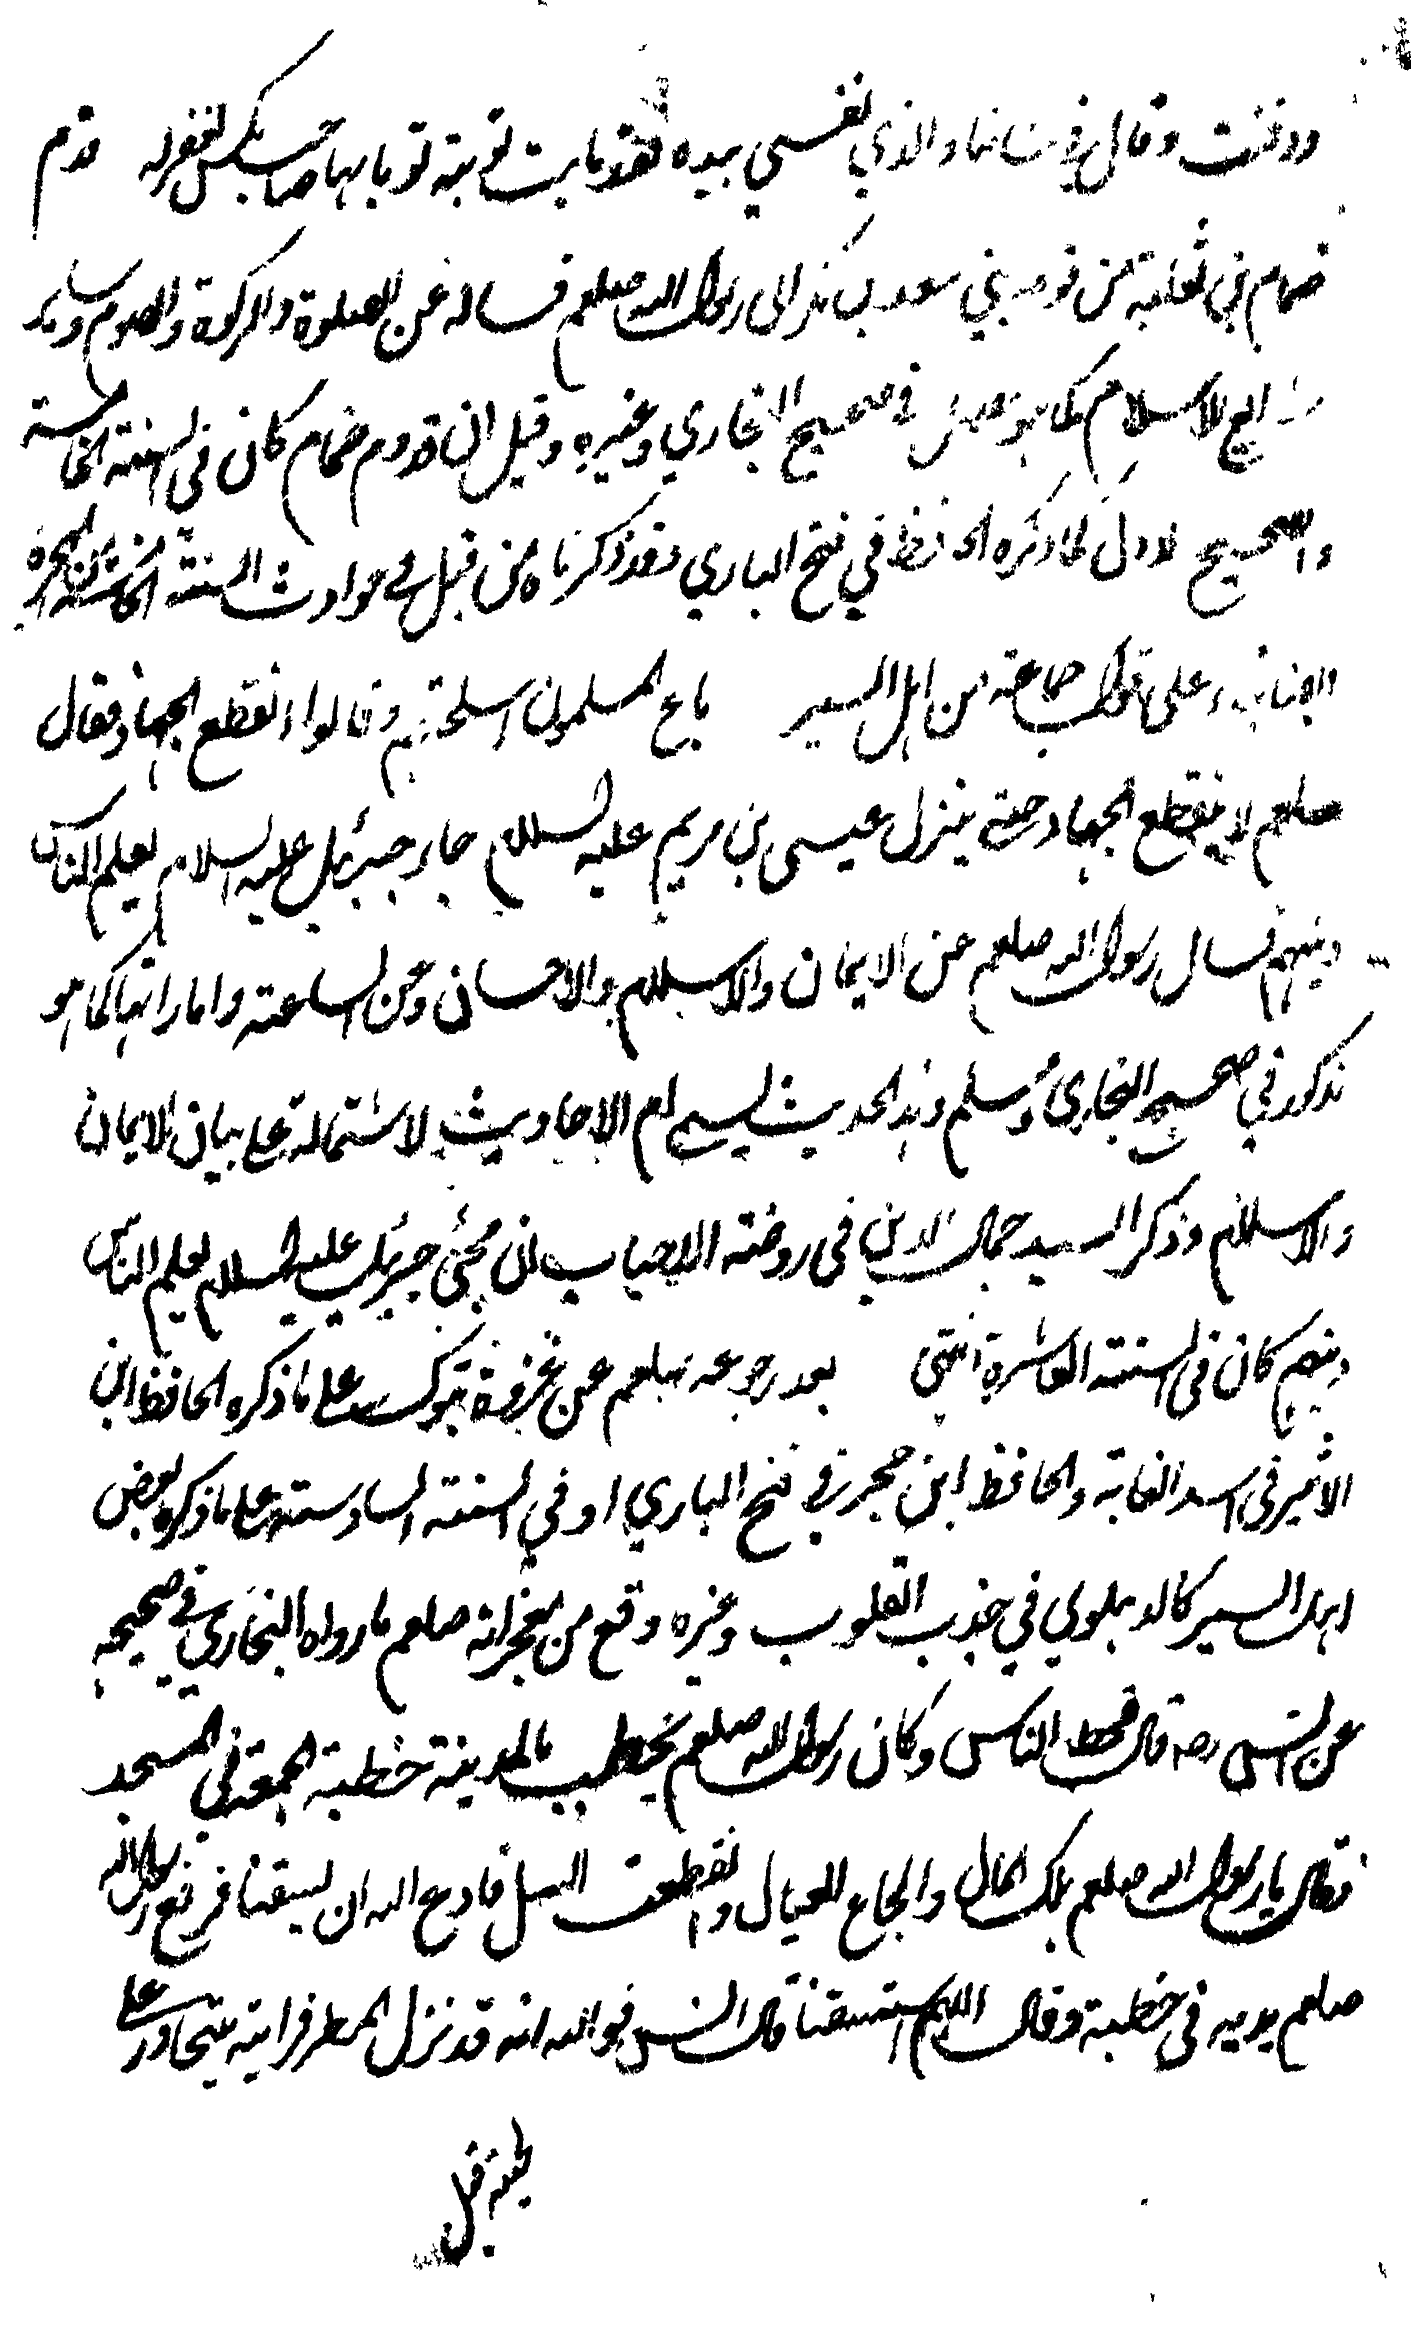 ودفنت وقال في شانها والذي نفسي بيده لقد تابت توبة لو تابها صاحب مكس لغفر له قدم
ضمام بن ثعلبة من قومه بني سعد بن بكر الى رسول الله صلعم فساله عن الصلوة والزكوة والصوم وسائر
شرائع الاسلام كما هو مفصل في صحيح البخاري وغيره وقيل ان قدوم ضمام كان في السنة الخامسة
والصحيح الاول كما ذكره الحافظ في فتح الباري وقد ذكرناه من قبل في حوادث السنة الخامسة من الهجرة
وعلى قول جماعة من اهل السير باع المسلمون اسلحتهم وقالوا انقطع الجهاد فقال
صلعم لا ينقطع الجهاد حتى ينزل عيسى بن مريم عليه السلام جاء جبرئيل عليه السلام يعلم الناس
دينهم فسال رسول الله صلعم عن الايمان والاسلام والاحسان وعن الساعة واماراتها كما هو
مذكور في صحيح البخاري ومسلم وهذا الحديث يسمى ام الاحاديث لاشتماله على بيان الايمان
والاسلام وذكر السيد جمال الدين في روضة الاحباب ان مجئ جبرئيل عليه السلام لعلم الناس
دينهم كان في السنة العاشرة انتهى بعد رجوعه صلعم عن غزوة تبوك على ما ذكره الحافظ ابن
الاثير في اسد الغابة والحافظ ابن حجر في فتح الباري او في السنة السادسة على ما ذكره بعض
اهل السير كالدهلوي في جذب القلوب وغيره وقع من معجزاته صلعم ما رواه البخاري في صحيحه
عن انس رضه قال قحط الناس وكان رسول الله صلعم يخطب بالمدينة خطبة الجمعة في المسجد
فقال يا رسول الله صلعم هلك المال والجاع العيال وانقطعت السبل فادع الله ان يسقنا فرفع رسول الله
صلعم يديه في خطبة وقال اللهم اسقنا قال انس فوالله انه قد نزل المطر فرايته يتحادر على